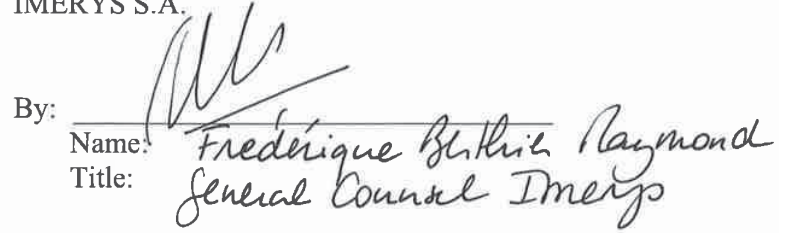 IMERYS S.A.
By:
Name: Frédérique Berthier Raymond
Title: General Counsel Imerys